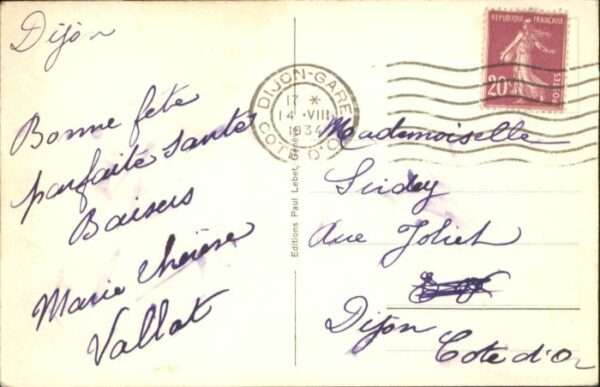 Dijon
Bonne fête
parfaite santé
Baisers
Marie Thérèse
Vallat
Editions Paul Lebet,
DIJON-GARE
17 *
14 -VIII
1934
COTE D'OR
REPUBLIQUE FRANÇAISE
20c
POSTES
Mademoiselle
Rue Joliet
Dijon
Cote d'Or